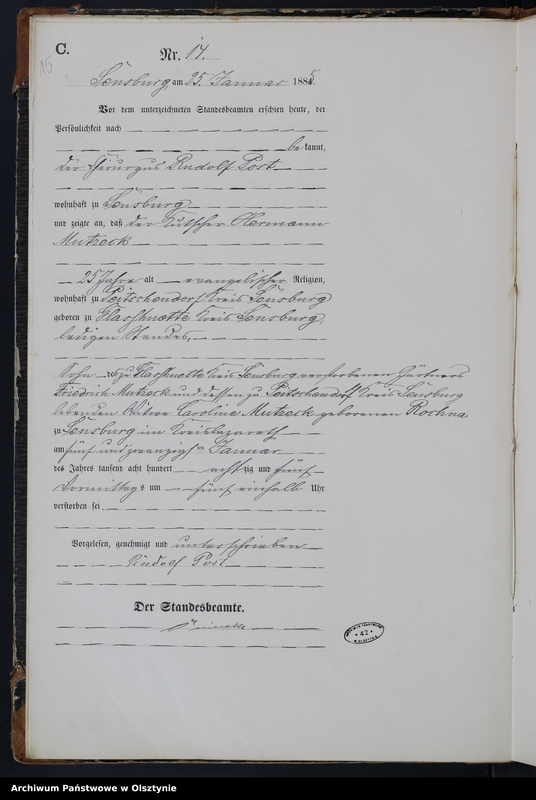 C.
15
Nr. 14.
Sensburg, am 25. Januar 1885.
Vor dem unterzeichneten Standesbeamten erschien heute, der
Persönlichkeit nach
be kannt,
der Chirurgus Rudolf Post
wohnhaft zu Sensburg
und zeigte an, daß der Kutscher Hermann
Mutzeck
25 Jahre alt evangelischer Religion,
wohnhaft zu Peitschendorf Kreis Sensburg
geboren zu Glashuette Kreis Sensburg,
ledigen Standes,
Sohn des zu Glashuette Kreis Sensburg verstorbenen Gärtners
Friedrich Mutzeck und dessen zu Peitschendorf Kreis Sensburg
lebenden Witwe Caroline Mutzeck geborenen Rochna
zu Sensburg im Kreislazareth
am fünf und zwanzigsten Januar
des Jahres tausend acht hundert acht zig und fünf
Vormittags um fünf einhalb Uhr
verstorben sei
Vorgelesen, genehmigt und unterschrieben
Rudolf Post
Der Standesbeamte.
42
Archiwum Państwowe w Olsztynie